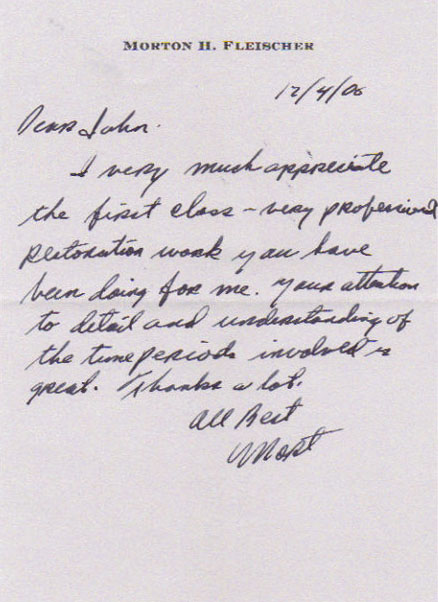 MORTON H. FLEISCHER
12/4/06
Dear John.
I very much appreciate
the first class - very professional
restoration work you have
been doing for me. Your attention
to detail and understanding of
the time periods involved is
great. Thanks a lot.
All Best
Mort